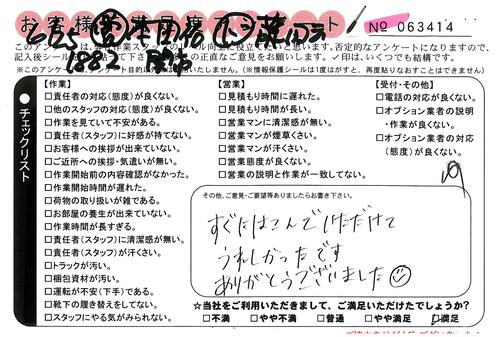 お客様満足度アンケート
No 063414
このアンケートは、弊社作業スタッフのレベル向上に役立てたいと思います。否定的なアンケートになりますので、
記入後シールを貼って下さい。お客様の正直なご意見をお願いします。✓印は、いくつでも結構です。
※このアンケート目的以外では使用いたしません。(※情報保護シールは1度はがすと、再度貼りなおすことはできません)
チェックリスト
【作業】
□責任者の対応(態度)が良くない。
□他のスタッフの対応(態度)が良くない。
□作業を見ていて不安がある。
□責任者(スタッフ)に好感が持てない。
□お客様への挨拶が出来ていない。
□ご近所への挨拶・気遣いが無い。
□作業開始前の内容確認がなかった。
□作業開始時間が遅れた。
□荷物の取り扱いが雑である。
□お部屋の養生が出来ていない。
□作業時間が長すぎる。
□責任者(スタッフ)に清潔感が無い。
□責任者(スタッフ)が汗くさい。
□トラックが汚い。
□梱包資材が汚い。
□運転が不安(下手)である。
□靴下の履き替えをしてない。
□スタッフにやる気がみられない。
【営業】
□見積もり時間に遅れた。
□見積もり時間が長い。
□営業マンに清潔感が無い。
□営業マンが煙草くさい。
□営業マンが汗くさい。
□営業態度が良くない。
□営業の説明と作業が一致してない。
【受付・その他】
□電話の対応が良くない。
□オプション業者の説明
・作業が良くない。
□オプション業者の対応
(態度)が良くない。
その他、ご意見・ご要望等ありましたらお書き下さい。
すぐにはこんでいただけて
うれしかったです
ありがとうございました
☆当社をご利用いただきまして、ご満足いただけたでしょうか?
□不満 □やや不満 □普通 □やや満足 □満足